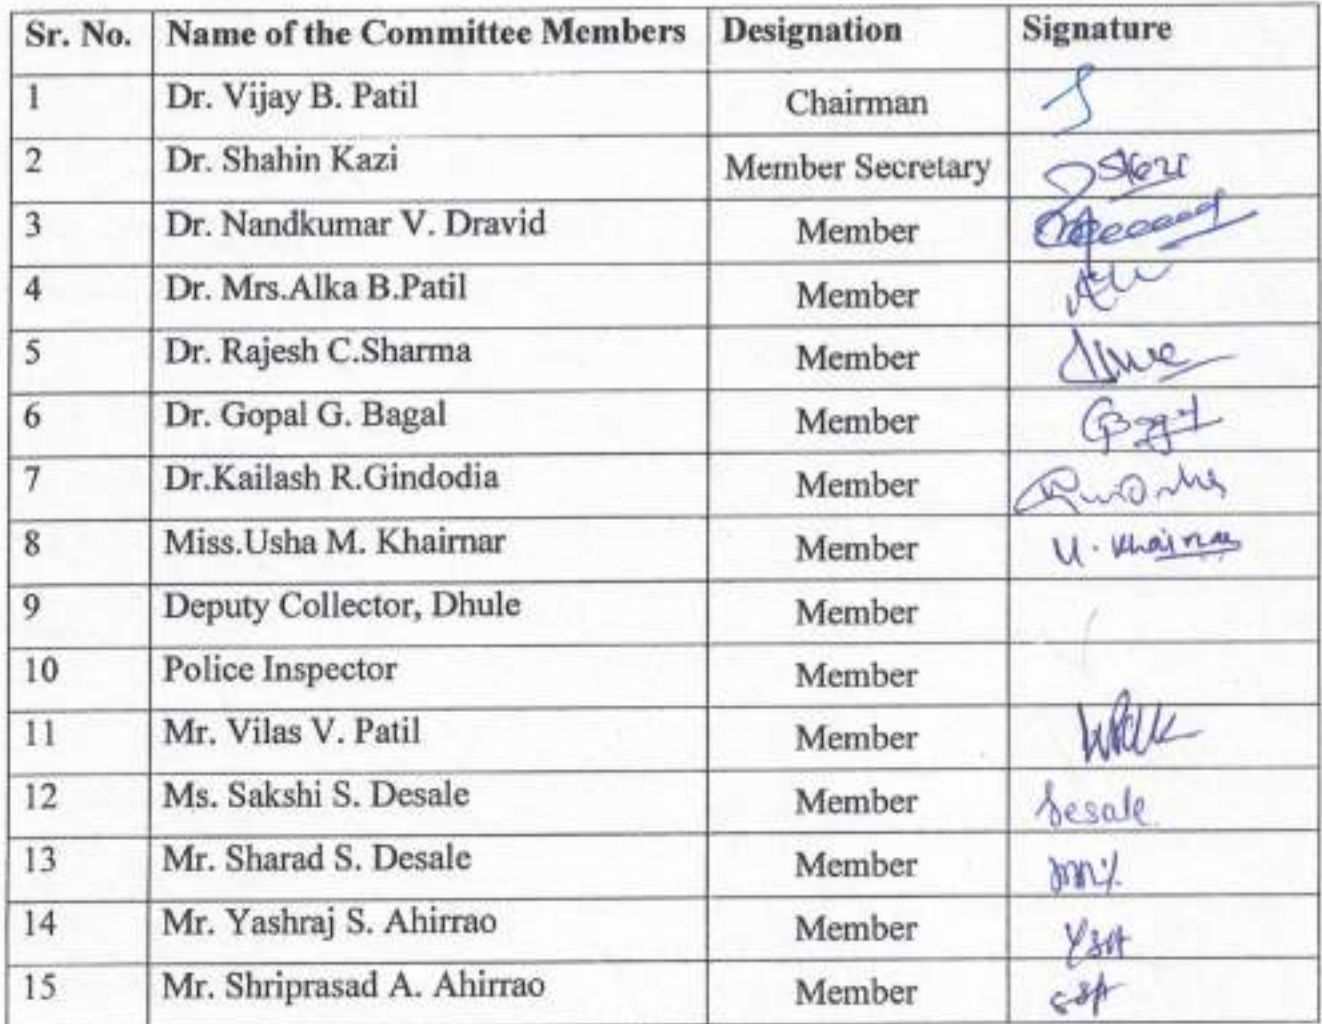 Sr. No. Name of the Committee Members Designation Signature
1 Dr. Vijay B. Patil Chairman
2 Dr. Shahin Kazi Member Secretary
3 Dr. Nandkumar V. Dravid Member
4 Dr. Mrs.Alka B.Patil Member
5 Dr. Rajesh C.Sharma Member
6 Dr. Gopal G. Bagal Member
7 Dr.Kailash R.Gindodia Member
8 Miss.Usha M. Khairnar Member U. Khairnar
9 Deputy Collector, Dhule Member
10 Police Inspector Member
11 Mr. Vilas V. Patil Member
12 Ms. Sakshi S. Desale Member Desale
13 Mr. Sharad S. Desale Member
14 Mr. Yashraj S. Ahirrao Member YSA
15 Mr. Shriprasad A. Ahirrao Member